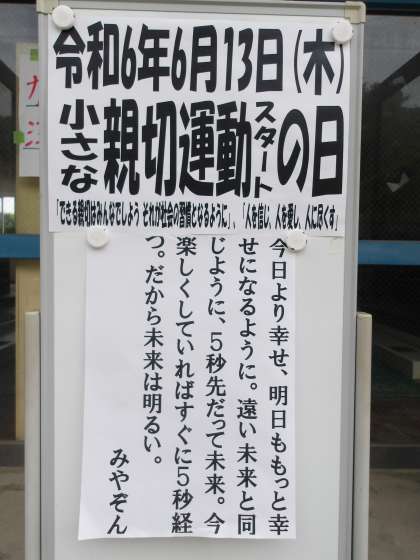 令和6年6月13日(木)
小さな親切運動スタートの日
「できる親切はみんなでしよう それが社会の習慣となるように」、「人を信じ、人を愛し、人に尽くす」
今日より幸せ、明日ももっと幸
せになるように。遠い未来と同
じように、5秒先だって未来。今
楽しくしていればすぐに5秒経
つ。だから未来は明るい。
みやぞん